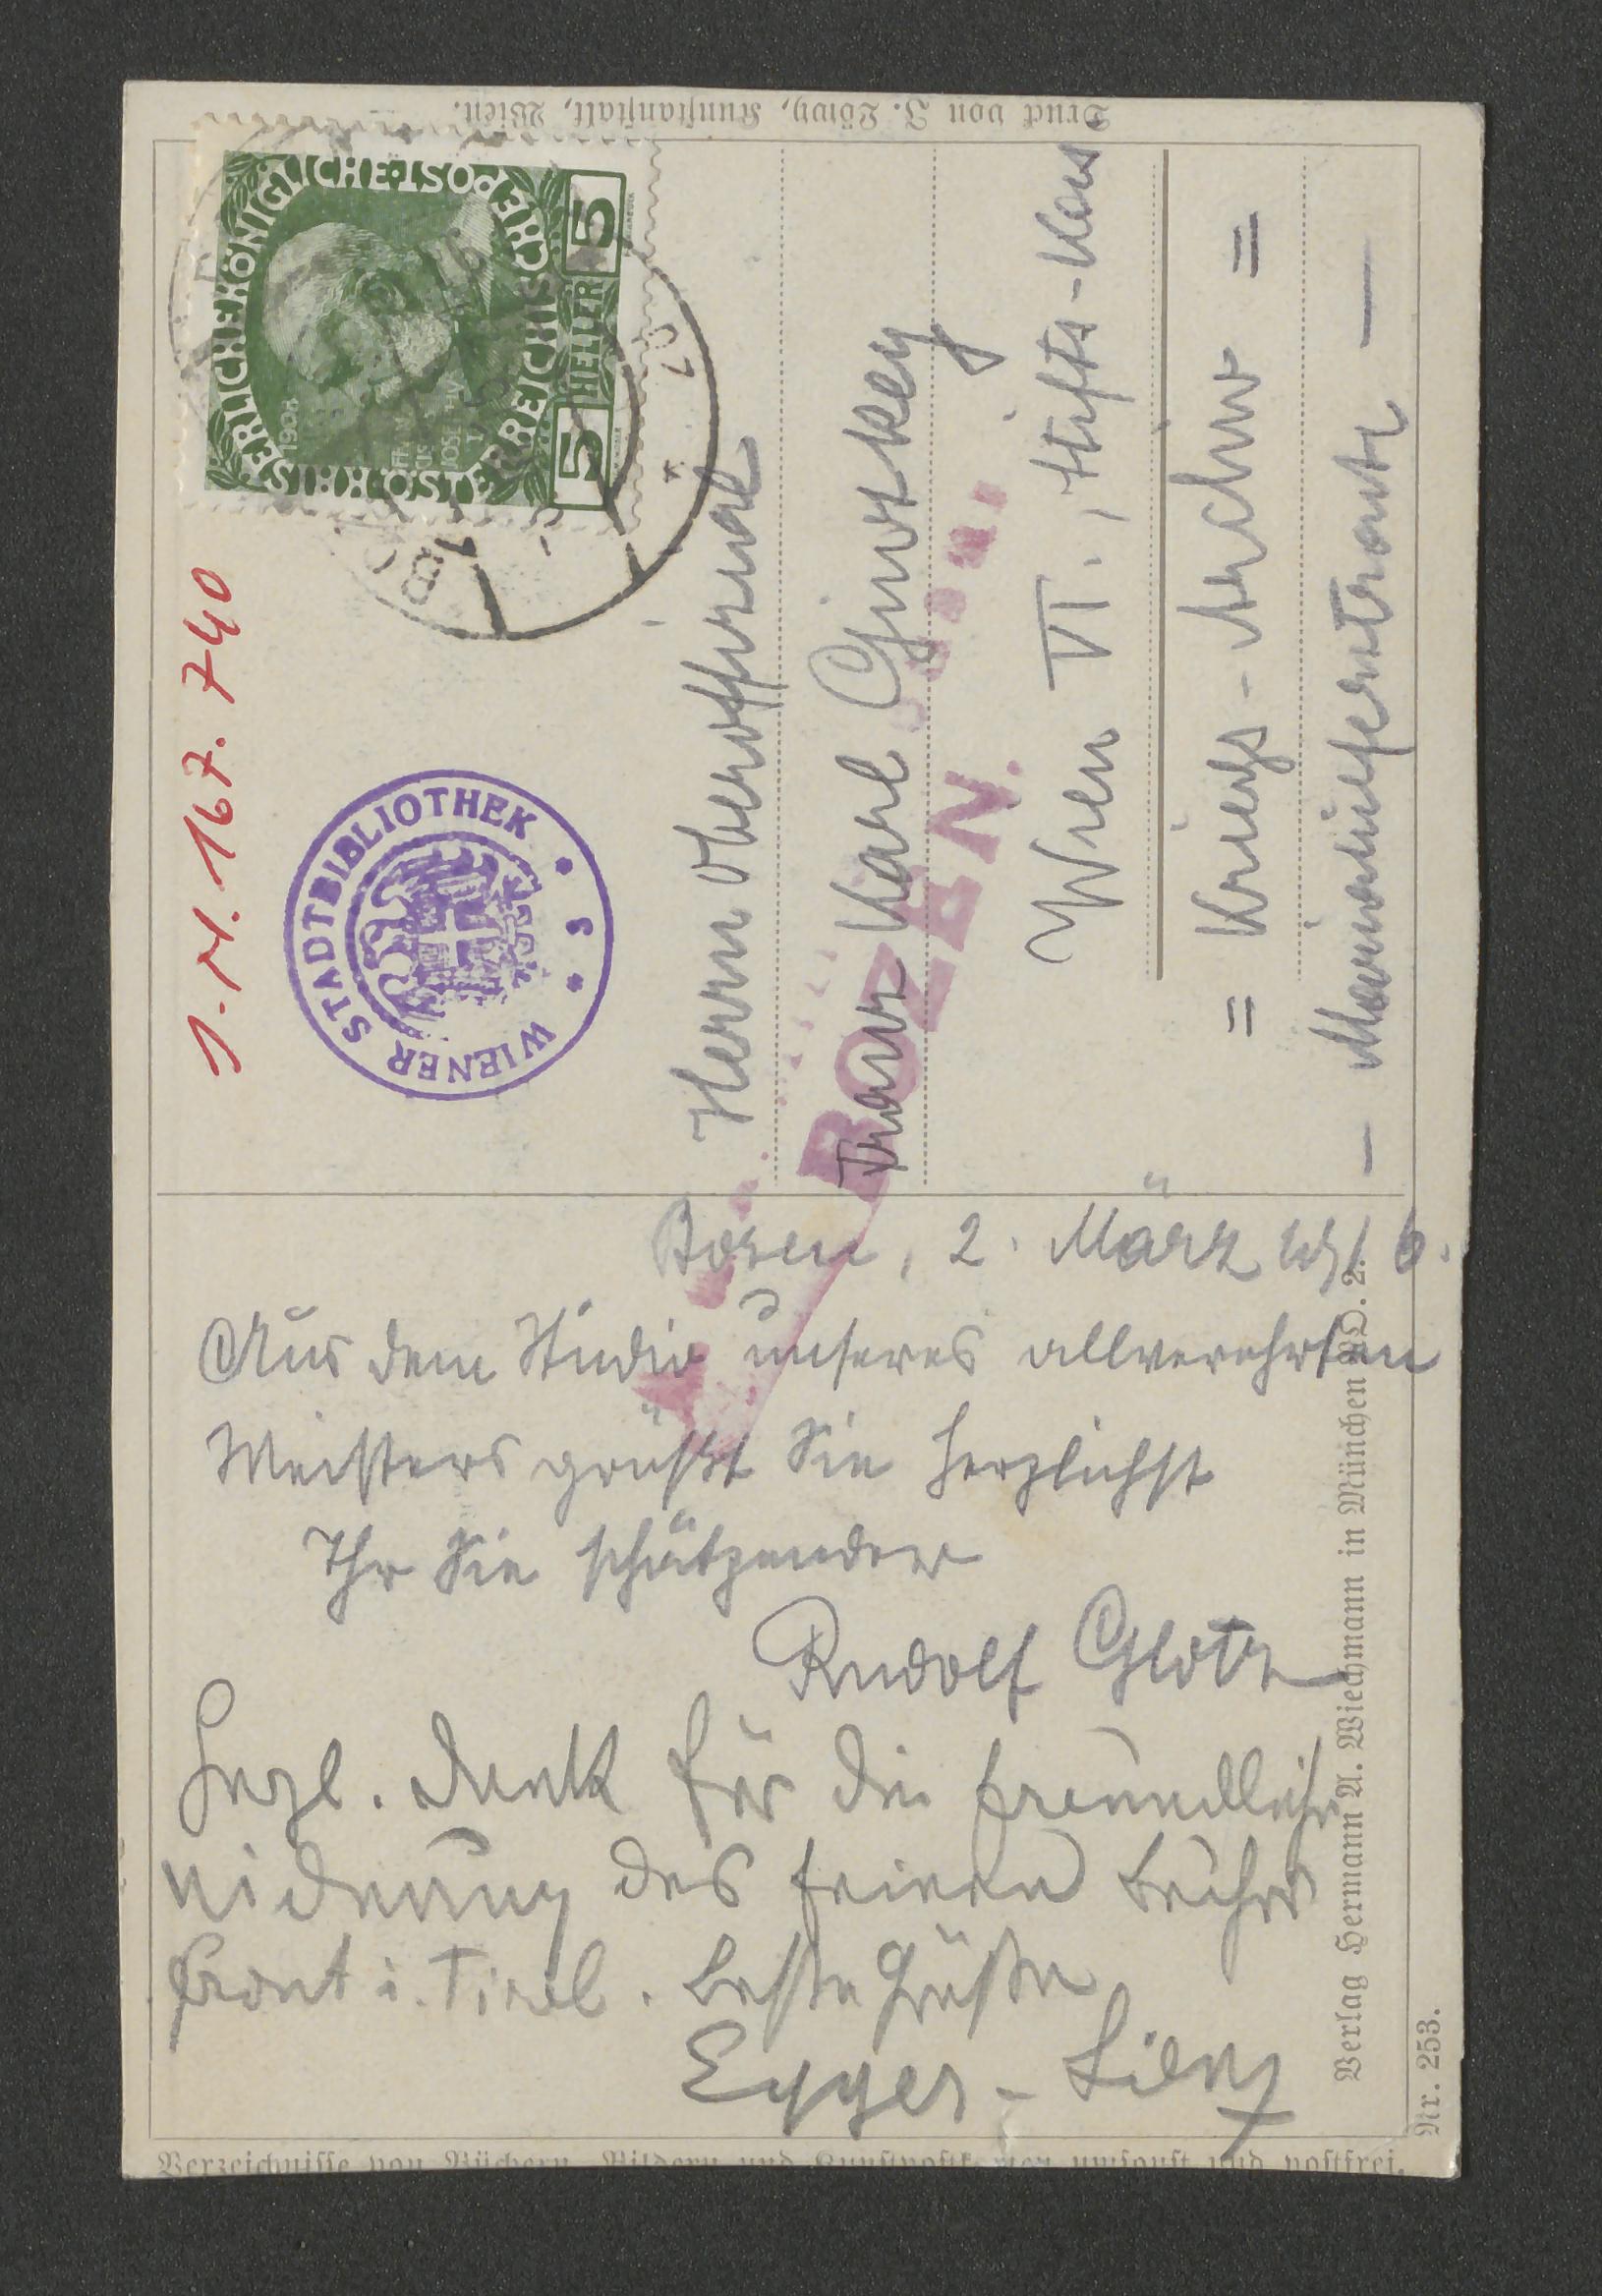 Bozen, 2. März 1916.
Aus dem Studio unseres allverehrten
Meisters grüßt Sie herzlichst
Ihr Sie schätzender
Rudolf Glotz
Herzl. Dank für die freundliche
des feinen Buches
Front i. Tirol. Beste Grüße
Egger-Lienz
Herrn Oberoffizial
Franz Karl Ginzkey
Wien VI., Stifts-Kas
= Kriegs-Archiv =
— Mariahilferstraße —
1. N. 167.740
WIENER STADTBIBLIOTHEK
* S *
KAISERLICHE KÖNIGLICHE POST
ÖSTERREICHISCHE
1908
5 HELLER 5
BOZEN.
Druck von J. Löwy, Kunstanstalt, Wien.
Verlag Hermann A. Wiechmann in München NO. 2.
Nr. 253.
Verzeichnisse von Büchern, Bildern und Kunstpostkarten umsonst und postfrei.